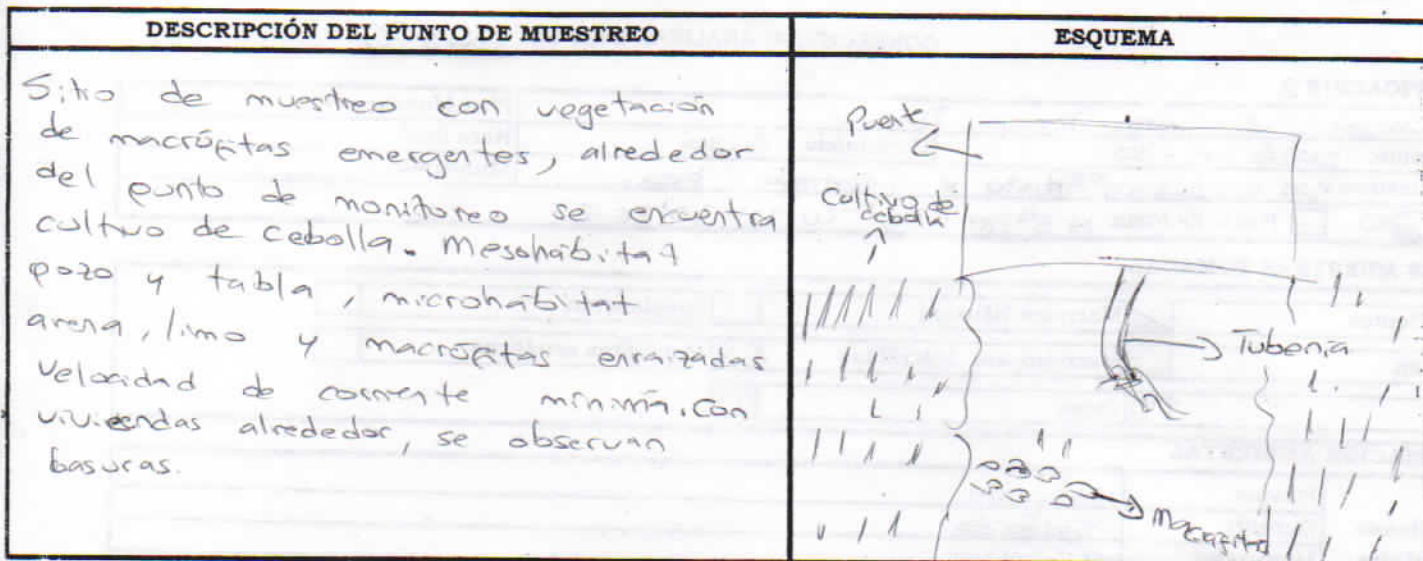 DESCRIPCIÓN DEL PUNTO DE MUESTREO
Sitio de muestreo con vegetación
de macrófitas emergentes, alrededor
del punto de monitoreo se encuentra
cultivo de cebolla. Mesohábitat
pozo y tabla, microhábitat
arena, limo y macrófitas enraizadas
Velocidad de corriente mínima. Con
viviendas alrededor, se observan
basuras.
ESQUEMA
Puent
Cultivo de
cebolla
Tubería
Macrófitas